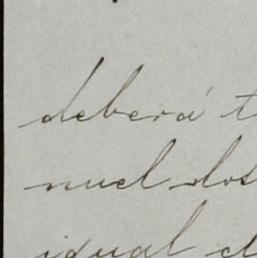 deberá t
nuel dos
igual d